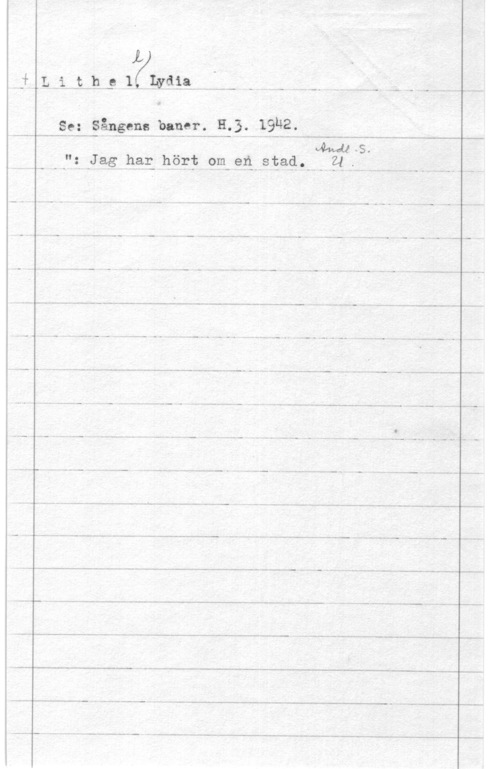 † L i t h e l l, Lydia
Se: Sångens baner. H.3. 1942.
": Jag har hört om en stad. Andl.S. 21.